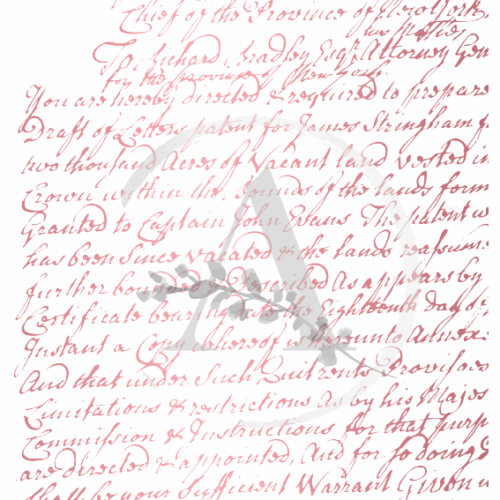 Chief of the Province of New York,
his Matties
To, Richard Bradley Esqr. Attorney Gen
for the province of New York.
You are hereby directed & required to prepare
Draft of Letters patent for James Stringham f
two thousand Acres of Vacant land vested in
Crown within the bounds of the lands form
Granted to Captain John Evans The patent w
has been Since vacated & the lands reassume
further bounded & Described As appears by
Certificate bearing date the Eighteenth day of
Instant a Copy whereof is hereunto Annex
And that under Such Quitrents Provisoes
Limitations & restrictions As by his Majes
Commission & Instructions for that purp
are directed & appointed, And for so doing
shall be your Sufficient Warrant Given u
A